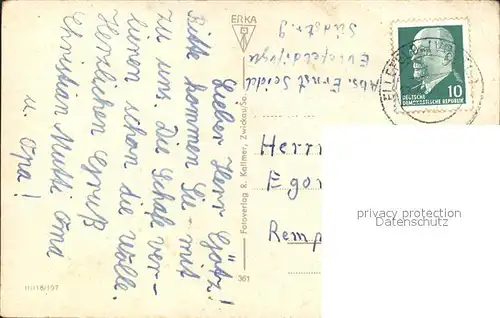 Lieber Herr Götz!
Bitte kommen Sie mit
zu uns. Die Schafe ver-
lieren schon die Wolle.
Herzlichen Gruß
Christian Mutti Oma
u. Opa!
ERKA
Abs. Ernst Seidel
Südstr. 9
Fotoverlag R. Kallmer, Zwickau/Sa.
361
III/18/197
ELLEFELD
10
DEUTSCHE
DEMOKRATISCHE REPUBLIK
Herrn
Egon
Remp
privacy protection
Datenschutz